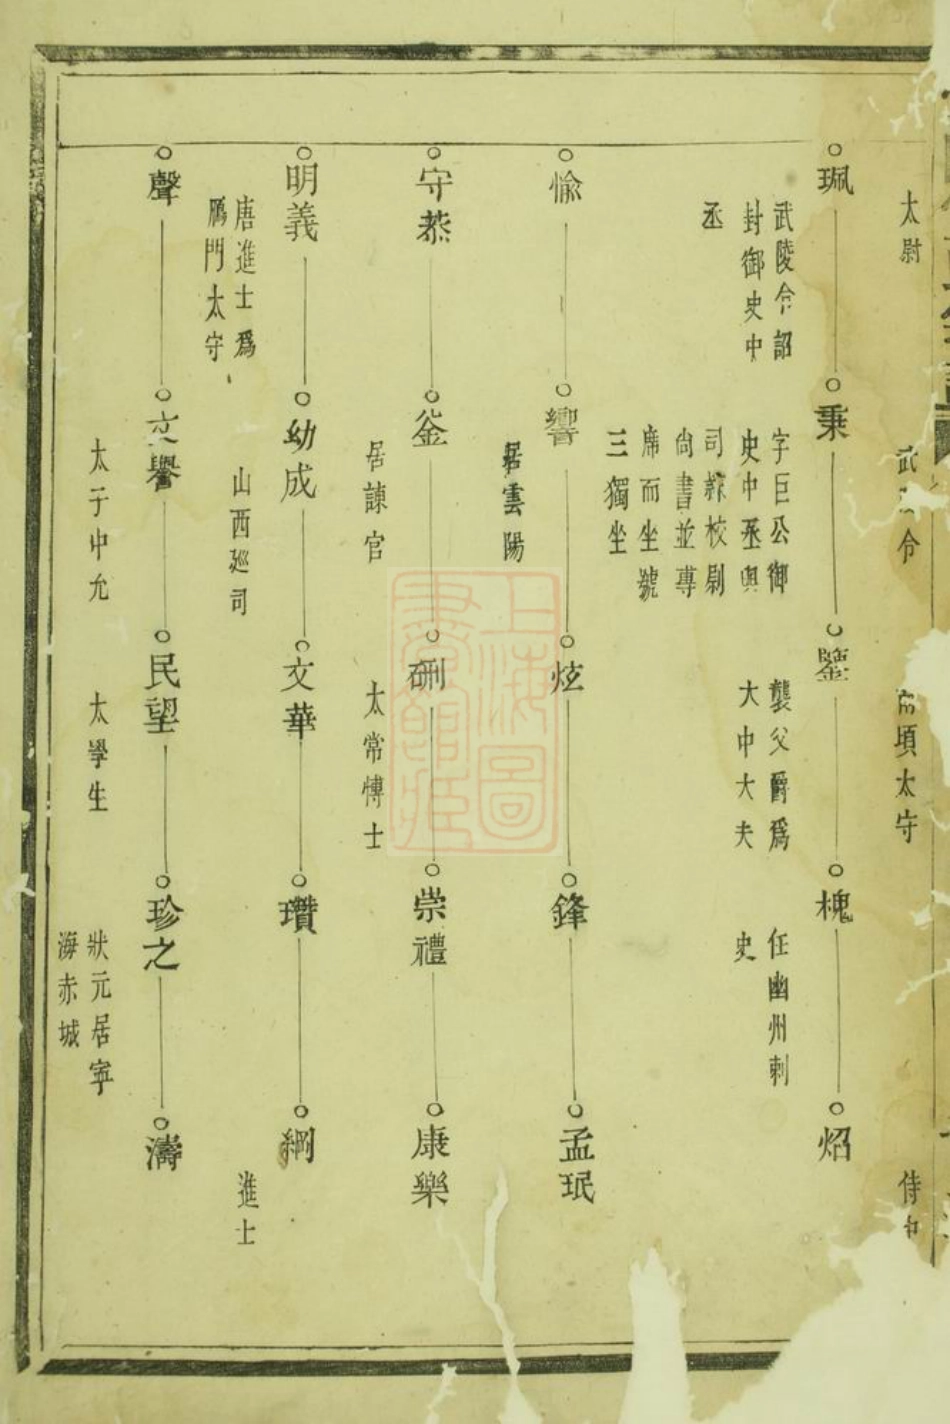 太尉
令
頃太守
侍中
珮
武陵令詔
封御史中
丞
秉
字巨公御
史中丞與
司隸校尉
尚書並專
席而坐號
三獨坐
鑒
襲父爵爲
大中大夫
槐
任幽州刺
史
炤
愉
響
居雲陽
炫
鋒
孟珉
守恭
釜
居諫官
硎
太常博士
崇禮
康樂
明義
唐進士爲
鴈門太守
幼成
山西廵司
文華
瓚
綱
進士
聲
文譽
太子中允
民望
太學生
珍之
狀元居寧
海赤城
濤
上海圖書館藏